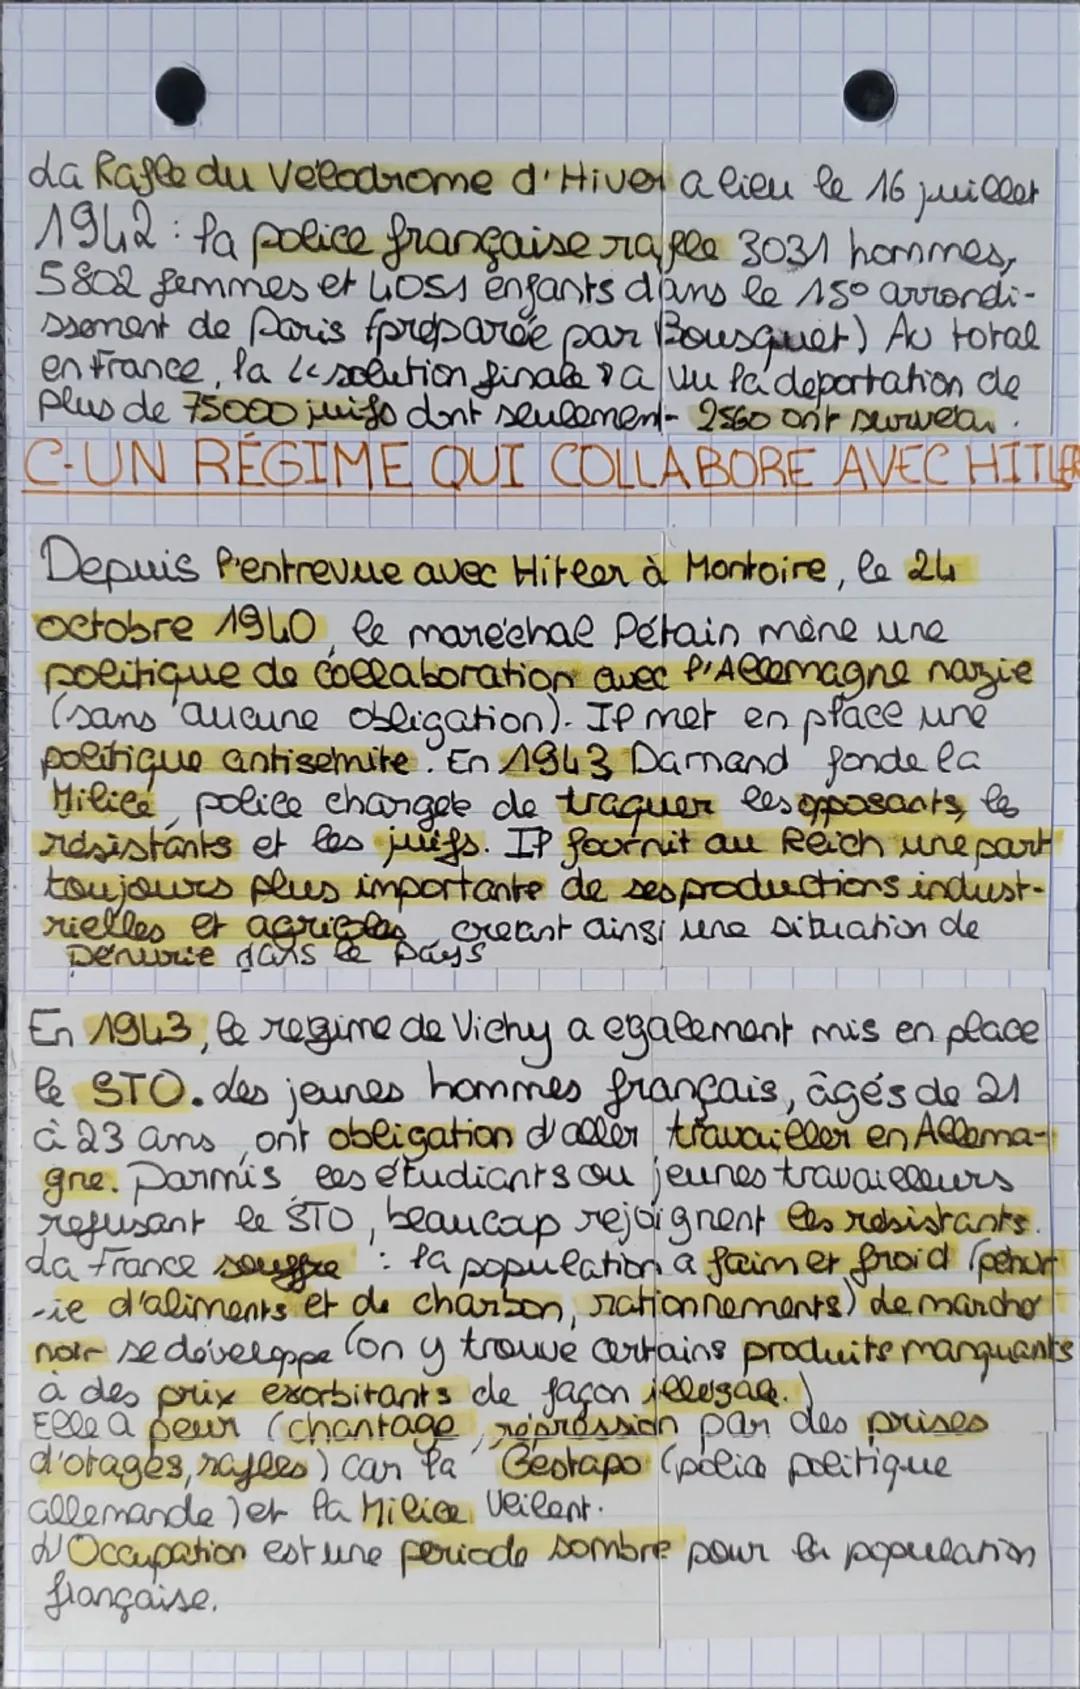 La Rafle du Vélodrome d'Hiver a lieu le 16 juillet
1942 : la police française rafle 3031 hommes,
5802 femmes et 4051 enfants dans le 15° arrondi-
ssement de Paris (préparée par Bousquet) Au total
en France, la « solution finale » a vu la déportation de
plus de 75000 juifs dont seulement 2560 ont survécu.
C-UN RÉGIME QUI COLLABORE AVEC HITLER
Depuis l'entrevue avec Hitler à Montoire, le 24
octobre 1940, le maréchal Pétain mène une
politique de collaboration avec l'Allemagne nazie
(sans aucune obligation). Il met en place une
politique antisémite. En 1943 Darnand fonde la
Milice, police chargée de traquer les opposants, les
résistants et les juifs. Il fournit au Reich une part
toujours plus importante de ses productions indust-
rielles et agricoles, créant ainsi une situation de
pénurie dans le pays
En 1943, le régime de Vichy a également mis en place
le STO. des jeunes hommes français, âgés de 21
à 23 ans, ont obligation d'aller travailler en Allema-
gne. Parmis les étudiants ou jeunes travailleurs
refusant le STO, beaucoup rejoignent les résistants.
La France souffre : la population a faim et froid (pénur
-ie d'aliments et de charbon, rationnements) le marché
noir se développe (on y trouve certains produits manquants
à des prix exorbitants de façon illégale.)
Elle a peur (chantage, répression par des prises
d'otages, rafles) car la Gestapo (police politique
allemande) et la Milice veillent.
L'Occupation est une période sombre pour la population
française.